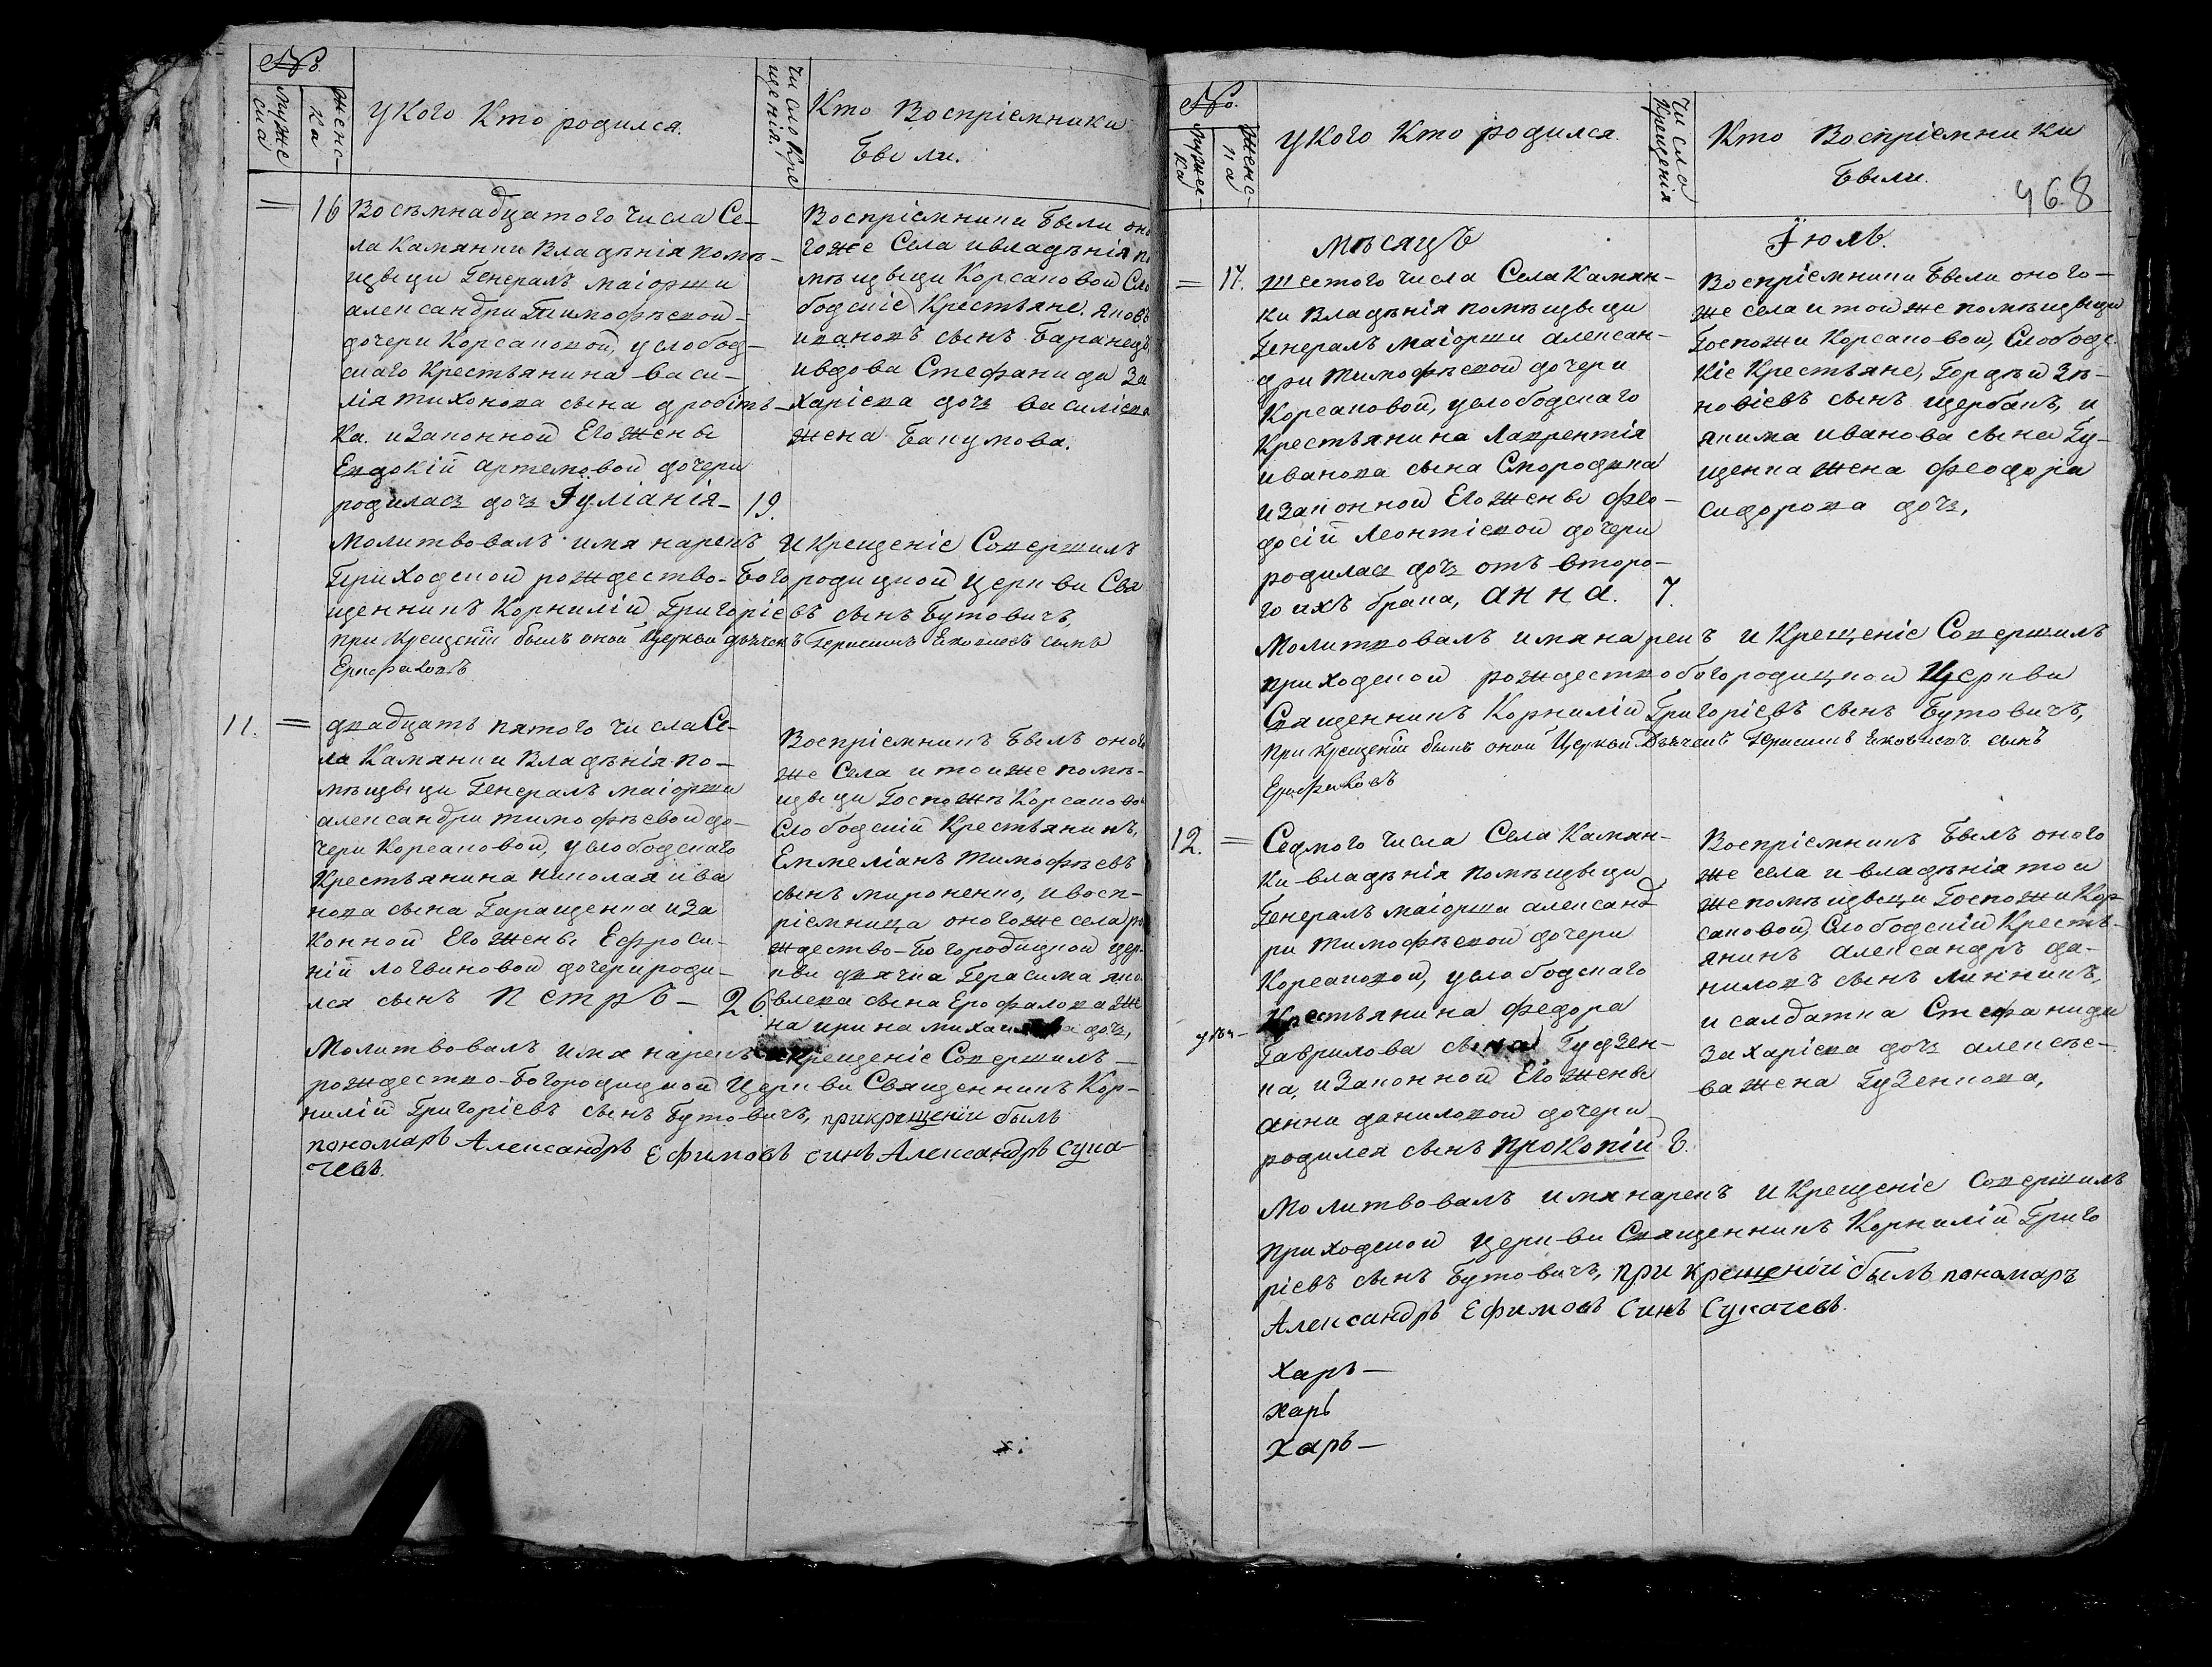 №
Мужеска
Женска
У кого Кто родился.
Число Крещенія.
Кто Воспріемники
Были.
= 16 Восѣмнадцатого числа Се-
ла Камянки Владѣнія помѣ-
щыци Генералъ маіорши
александри Тимофѣевой
дочери Корсаковой, услобод-
скаго Крестьянина васи-
лія тихонова сына дробитъ-
ка. и Законной Его жены
Евдокіи артемовой дочери
родилась дочь Іуліанія- 19.
Воспріемники Были оно
гоже Села ивладѣнія по
мѣщыци Корсаковой Сло
бодскіе Крестьяне. яковъ
ивановъ сынъ Баранецъ,
ивдова Стефанида За
харіева дочь василіева
жена Бакумова.
Молитвовалъ имя нарекъ и Крещеніе Совершилъ
Приходской рождество-Богородицкой Церкви Свя
щенникъ Корнилій Григоріевъ сынъ Бутовичъ,
при крещеніи былъ оной Церкви дьячекъ Герасимъ Яковлевъ сынъ
Ерофаловъ
11. = двадцать пятого числа Се-
ла Камянки Владѣнія по-
мѣщыци Генералъ маіорши
александри тимофѣевой до-
чери Корсаковой, услободскаго
Крестьянина николая ива
нова сына Гаращенка и За
конной Его жены Ефроси-
ніи логвиновой дочери роди-
лся сынъ Петръ - 26.
Воспріемникъ Былъ оного
же Села и тоиже помѣ-
щыци Госпожѣ Корсаково
Слободскій Крестьянинъ,
Еммеліанъ тимофѣевъ
сынъ мироненко, ивосп-
ріемница оногоже села ро
ждество-Богородицкой цер-
кви дьячка Герасима яко
влева сына Ерофалова же
на ирина михаилова дочь,
Молитвовалъ имя нарекъ и Крещеніе Совершилъ
рождество-Богородицкой Церкви Священникъ Кор-
нилій Григоріевъ сынъ Бутовичъ, прикрещеніи былъ
пономаръ Александръ Ефимовъ синъ Александръ Сука-
чевъ.
№.
Мужеска
Женска
У Кого Кто родился.
Число Крещенія
Кто Воспріемники
Были.
468
мѣсяцъ Іюль.
= 17. шестого числа Села Камян-
ки Владѣнія помѣщыци
Генералъ маіорши алексан-
дри тимофѣевой дочери
Корсаковой, услободскаго
Крестьянина лаврентія
иванова сына Смородина
и Законной Его жены Фео-
досіи леонтіевой дочери
родилась дочь отъ второ-
го ихъ брака, анна. 7.
Воспріемники Были оного-
же села и той же помѣщыци
Госпожи Корсаковой, Слободс
кіе Крестьяне, Гордѣй Зѣ-
новіевъ сынъ щербакъ, и
якима иванова сына Гу-
щенка жена феодора
сидорова дочь,
Молитвовалъ имя нарекъ и Крещеніе Совершилъ
приходской рождествобогородицкой Церкви
Священникъ Корнилій Григоріевъ сынъ Бутовичъ,
При крещеніи былъ оной Церкви Дьячекъ Герасимъ Яковлевъ сынъ
Ерофаловъ
12. = Седмого числа Села Камян-
ки владѣнія помѣщыци
Генералъ маіорши александ
ри тимофѣевой дочери
Корсаковой, услободскаго
Крестьянина федора
Гаврилова сына Гудзен-
ка, и Законной Его жены
анни даниловой дочери
родился сынъ прокопій 8.
Воспріемникъ Былъ оного
же села и владѣнія той
же помѣщыци Госпожи Кор
саковой, Слободскій Кресть-
янинъ александръ да-
ниловъ сынъ линникъ,
и салдатка Стефанида
Захаріева дочь алексѣе-
ва жена Гузенкова,
Молитвовалъ имя нарекъ и Крещеніе Совершилъ
приходской церкви Священникъ Корнилій Григо
ріевъ сынъ Бутовичъ, при крещеніи былъ панамаръ
Александръ Ефимовъ Синъ Сукачевъ.
Харъ-
харъ
Харъ-